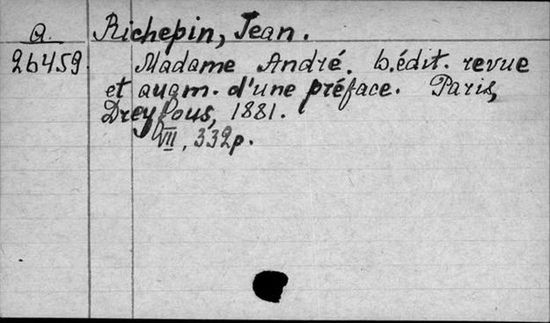 a.
Richepin, Jean.
26459.
Madame André. 6.édit. revue
et augm. d'une préface. Paris,
Dreyfous, 1881.
VII, 332p.